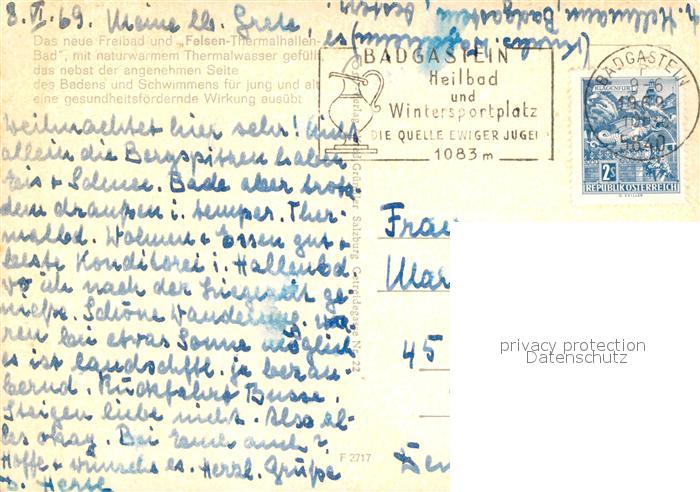 8. VI. 69 Meine lb. Grete,
Das neue Freibad und „Felsen-Thermalhallen-
Bad", mit naturwarmem Thermalwasser gefüllt,
das nebst der angenehmen Seite
des Badens und Schwimmens für jung und alt
eine gesundheitsfördernde Wirkung ausübt
BADGASTEIN
Heilbad
und
Wintersportplatz
DIE QUELLE EWIGER JUGEND
1083 m
BADGASTEIN
5640
KLAGENFURT
2S
REPUBLIK ÖSTERREICH
Hellmann, Badgastein,
es
weihnachtet hier sehr! Nicht
allein die Bergspitzen haben
Eis + Schnee. Bade aber trotz
dem draußen i. temper. Ther-
malbd. Wohnen + Essen gut +
beste Konditorei i. Hallenbd.
wo ich nach der Liegezeit ge-
nieße. Schöne Wanderung. wä-
ren bei etwas Sonne möglich
es ist landschftl. ja bezau-
bernd. Rückfahrt Busse.
Steigen liebe nicht. Also al-
les okay. Bei Euch auch?
Hoffe + wünsche es. Herzl. Grüße
Salzburg Getreidegasse Nr. 22
F 2717
Frau
Mar
45
privacy protection
Datenschutz